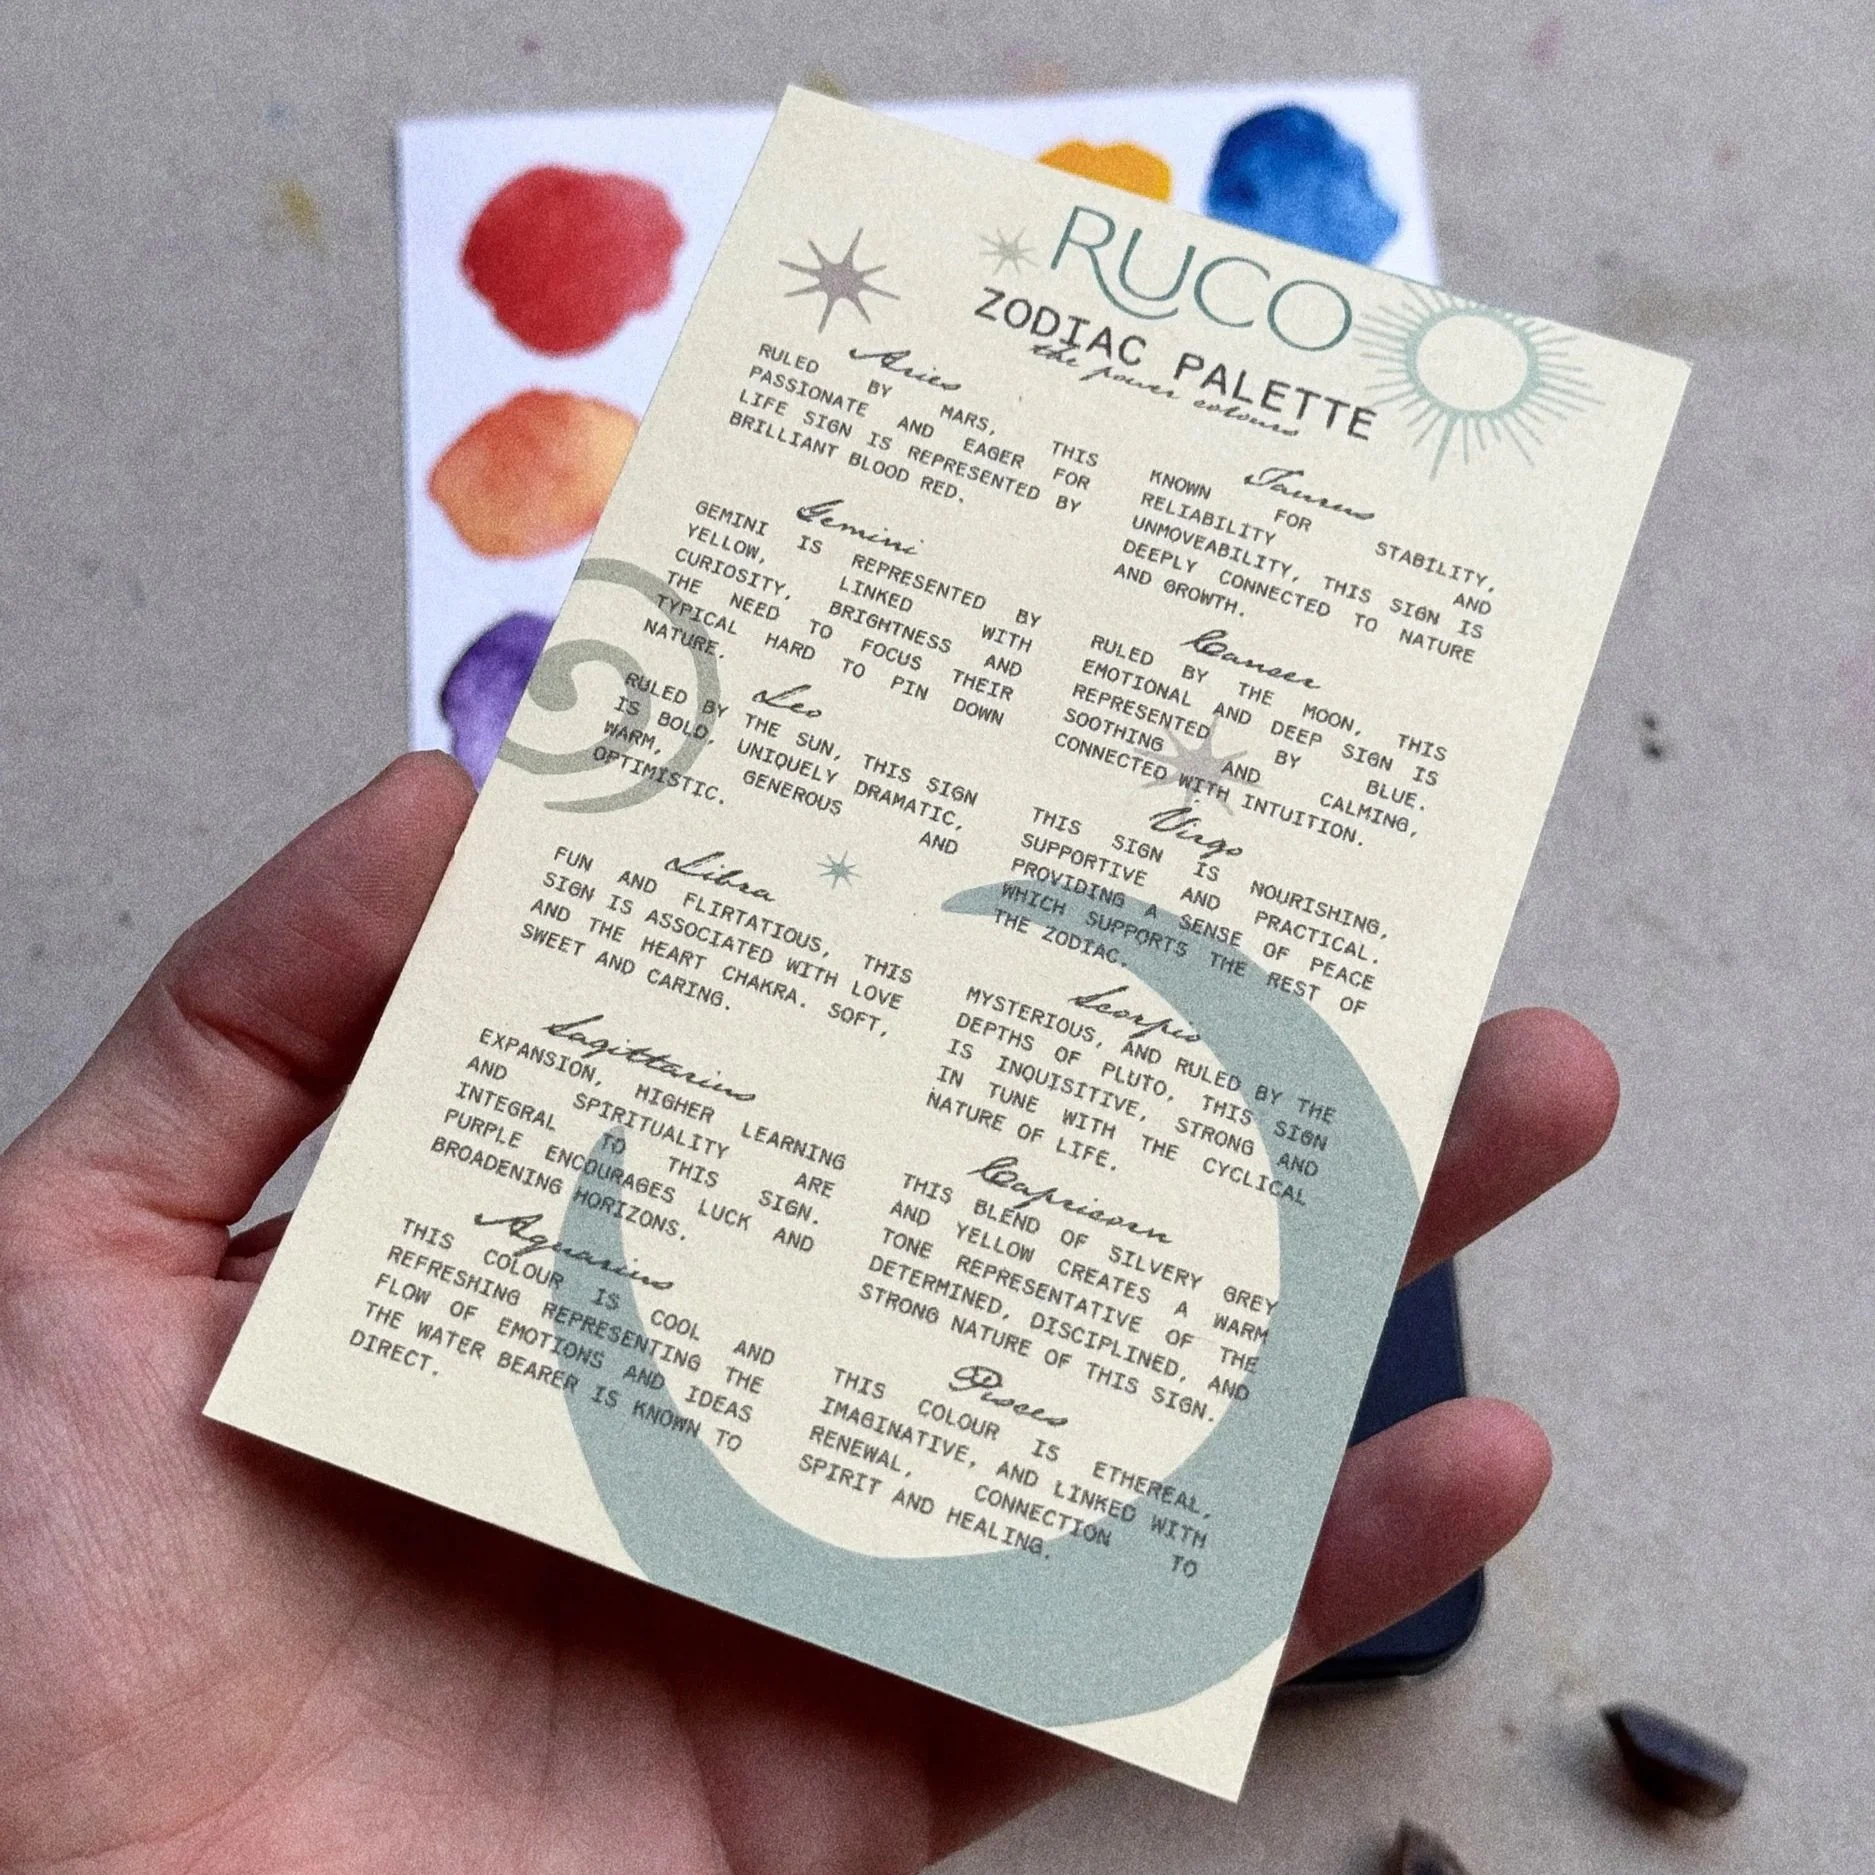 RUCO
ZODIAC PALETTE
the power colours
Aries
RULED BY MARS, THIS
PASSIONATE AND EAGER FOR
LIFE SIGN IS REPRESENTED BY
BRILLIANT BLOOD RED.
Taurus
KNOWN FOR STABILITY,
RELIABILITY AND
UNMOVEABILITY, THIS SIGN IS
DEEPLY CONNECTED TO NATURE
AND GROWTH.
Gemini
GEMINI IS REPRESENTED BY
YELLOW, LINKED WITH
CURIOSITY, BRIGHTNESS AND
THE NEED TO FOCUS THEIR
TYPICAL HARD TO PIN DOWN
NATURE.
Cancer
RULED BY THE MOON, THIS
EMOTIONAL AND DEEP SIGN IS
REPRESENTED BY BLUE.
SOOTHING AND CALMING,
CONNECTED WITH INTUITION.
Leo
RULED BY THE SUN, THIS SIGN
IS BOLD, UNIQUELY DRAMATIC,
WARM, GENEROUS AND
OPTIMISTIC.
Virgo
THIS SIGN IS NOURISHING,
SUPPORTIVE AND PRACTICAL.
PROVIDING A SENSE OF PEACE
WHICH SUPPORTS THE REST OF
THE ZODIAC.
Libra
FUN AND FLIRTATIOUS, THIS
SIGN IS ASSOCIATED WITH LOVE
AND THE HEART CHAKRA. SOFT,
SWEET AND CARING.
Scorpio
MYSTERIOUS, AND RULED BY THE
DEPTHS OF PLUTO, THIS SIGN
IS INQUISITIVE, STRONG AND
IN TUNE WITH THE CYCLICAL
NATURE OF LIFE.
Sagittarius
EXPANSION, HIGHER LEARNING
AND SPIRITUALITY ARE
INTEGRAL TO THIS SIGN.
PURPLE ENCOURAGES LUCK AND
BROADENING HORIZONS.
Capricorn
THIS BLEND OF SILVERY GREY
AND YELLOW CREATES A WARM
TONE REPRESENTATIVE OF THE
DETERMINED, DISCIPLINED, AND
STRONG NATURE OF THIS SIGN.
Aquarius
THIS COLOUR IS COOL AND
REFRESHING REPRESENTING THE
FLOW OF EMOTIONS AND IDEAS
THE WATER BEARER IS KNOWN TO
DIRECT.
Pisces
THIS COLOUR IS ETHEREAL,
IMAGINATIVE, AND LINKED WITH
RENEWAL, CONNECTION TO
SPIRIT AND HEALING.